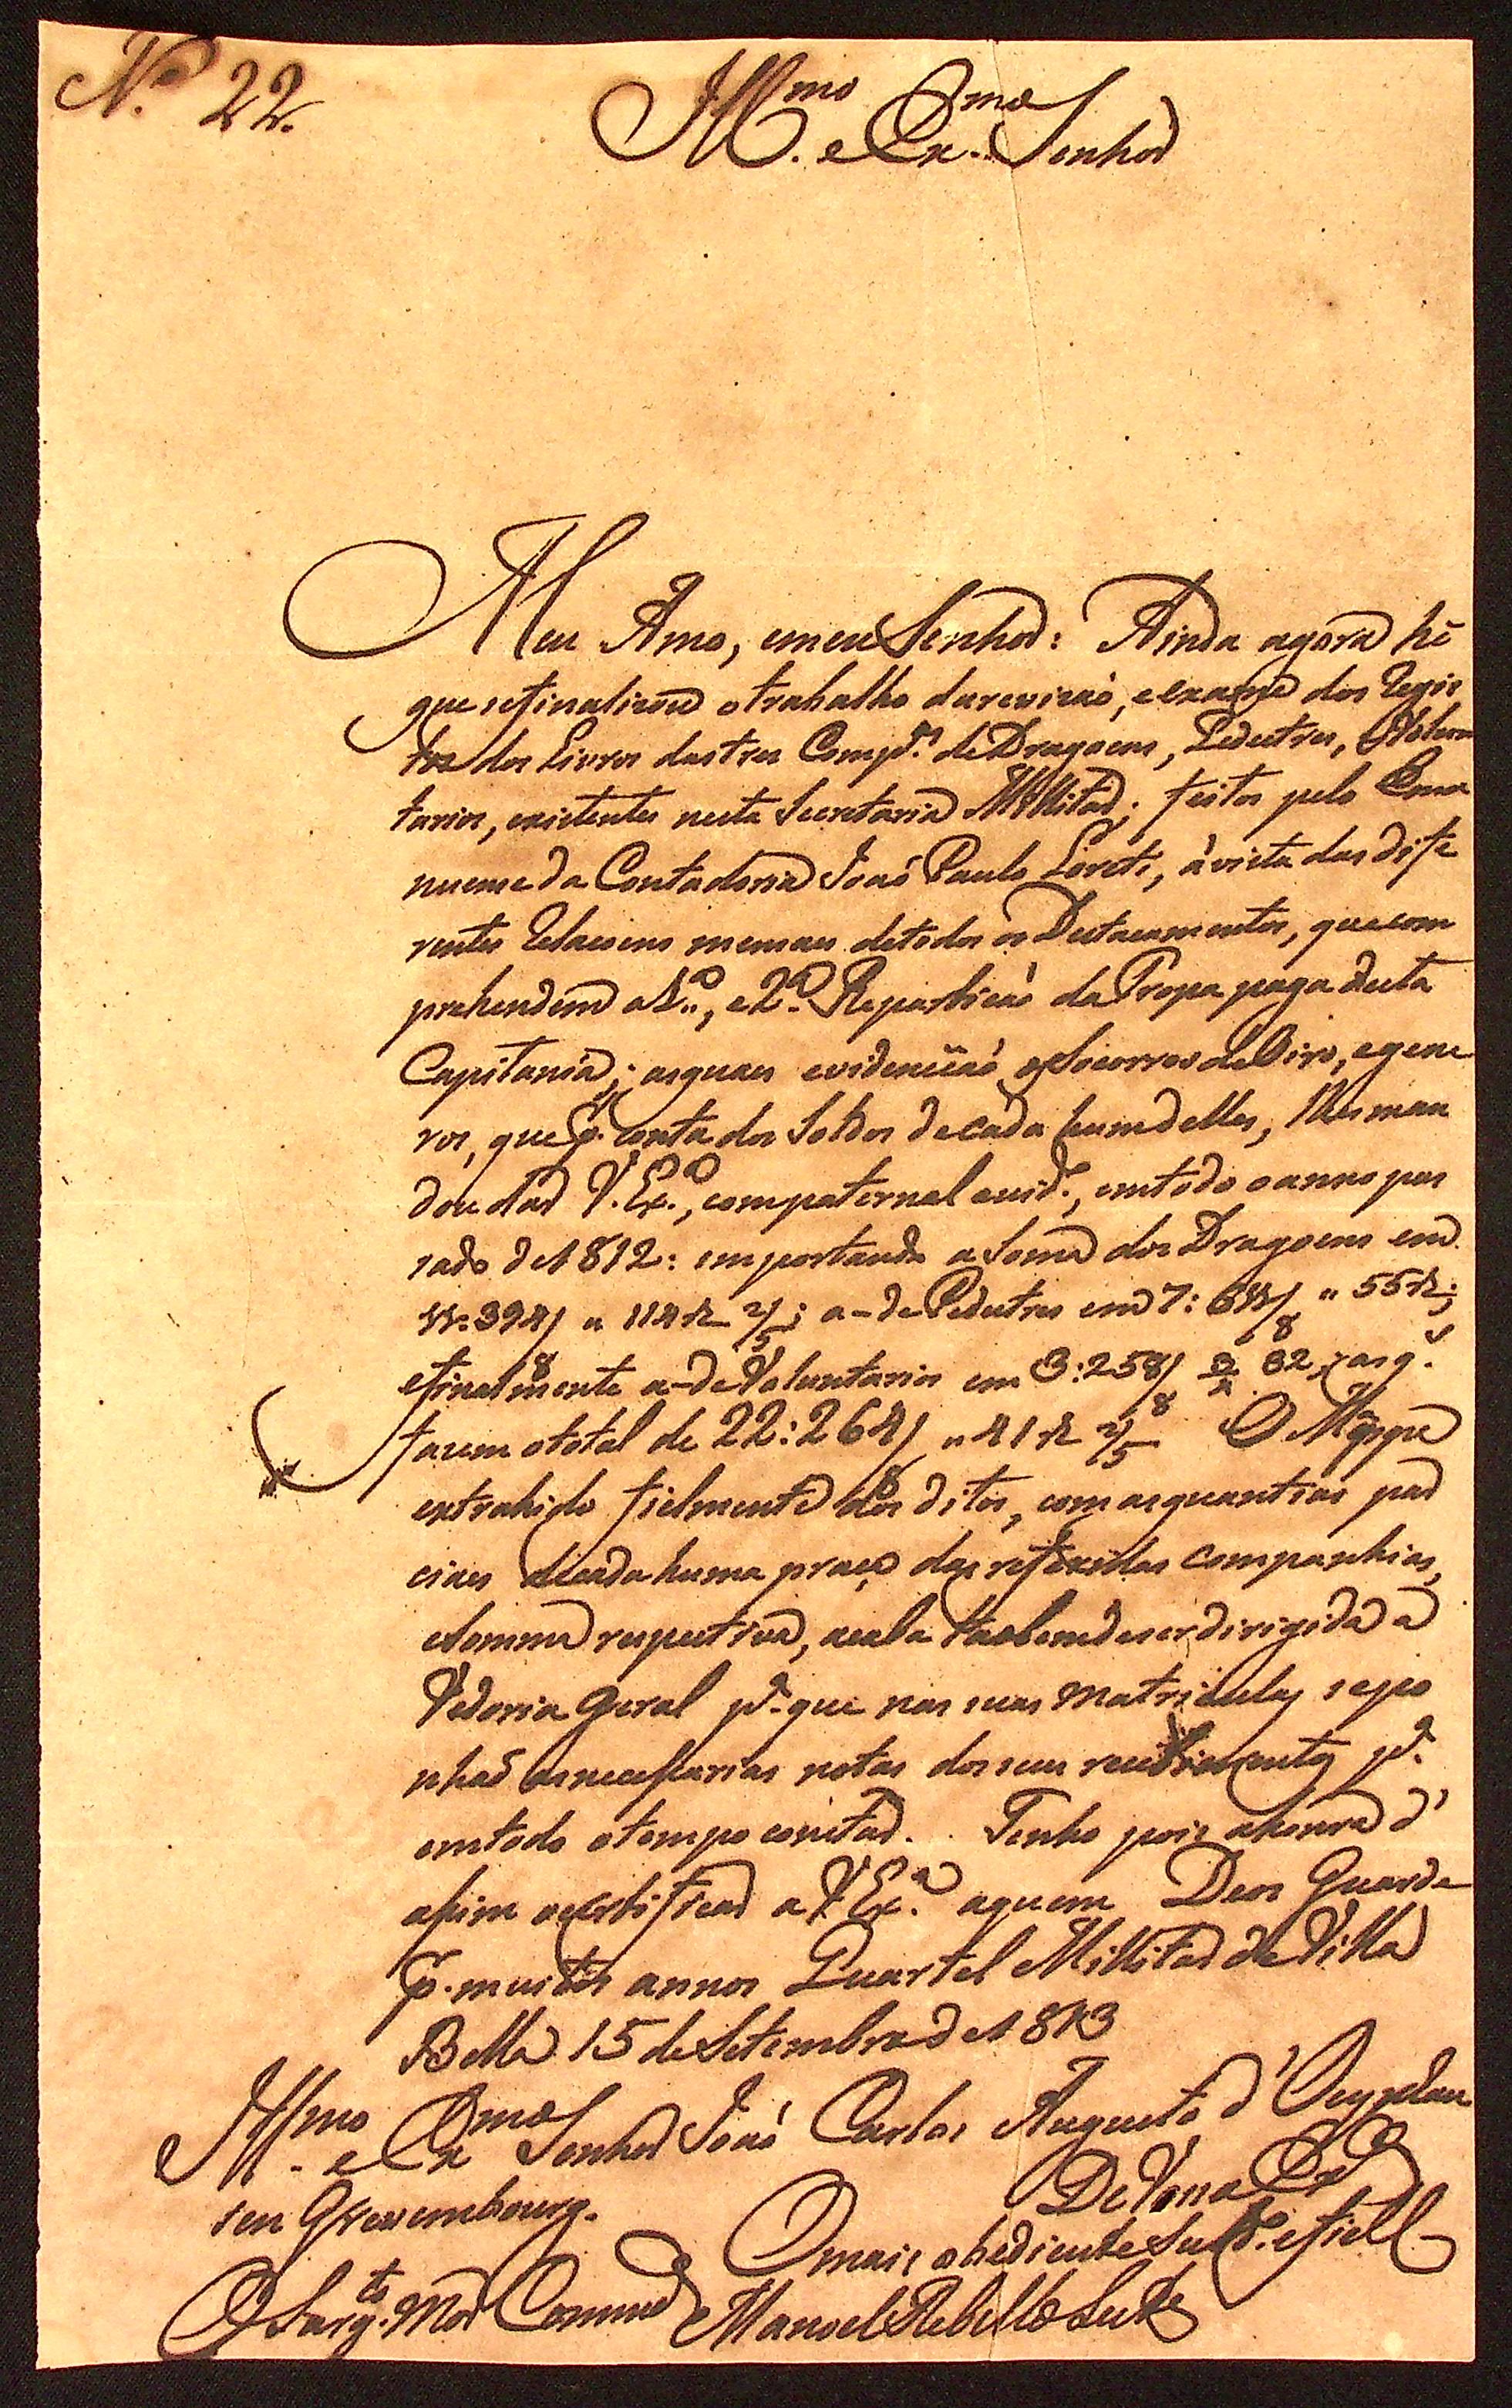 N.º 22.
Ill.mo e Ex.mo Senhor
Meu Amo, emeu Senhor: Ainda agora hé
que sefinalizou otrabalho darevizaõ, eexame dos Regis
tos dos Livros das tres Comp.as de Dragoens, Pedestres, eVolun
tarios, existentes nesta Secretaria Millitar; feitos pelo Ama
nuense da Contadoria Joaõ Paulo Loreti, ávista das dife
rentes Relaçoens mensaes detodos os Destacamentos, que com
prehendem a 1.ª, e 2.ª Repartiçaõ da Tropa paga desta
Capitania; asquaes evidenciaõ osSocorros deDinr.o, egene
ros, que p.r conta dos Soldos decada humdelles, lhes man
dou dar V. Ex.ª, compaternal cuid.o, emtodo oanno pas
sado de1812: importando a Soma dos Dragoens em
11:394/8 " 11 4/5; a-dePedestres em 7:611/8 " 55
efinalmente a-deVoluntarios em 3:258/8 32; asq.s
fazem ototal de 22:264/8 " 41 4/5 O Mappa
extrahido fielmente dos ditos, com asquantias par
ciaes decadahuma praça das referidas Companhias,
eSomma respectiva, acaba taobem deser dirigida a
Vedoria Geral p.ª que nas suas Matriculas sepo
nhaõ asnecessarias notas dosseus recebimentos p.ª
emtodo otempo constar. Tenho pois ahonra d'
assim ocertificar a V. Ex.ª aquem Deos Guarde
p.r muitos annos Quartel Millitar de Villa
Bella 15 de Setembro de1813
Ill.mo e Ex.mo Senhor Joaõ Carlos Augusto d'Oeynhau
sen Grevembourg.
De Vossa Ex.ª
Omais obediente Subd.o efiel
O Sarg.to Mor Comm.e Manoel Rebello Leite